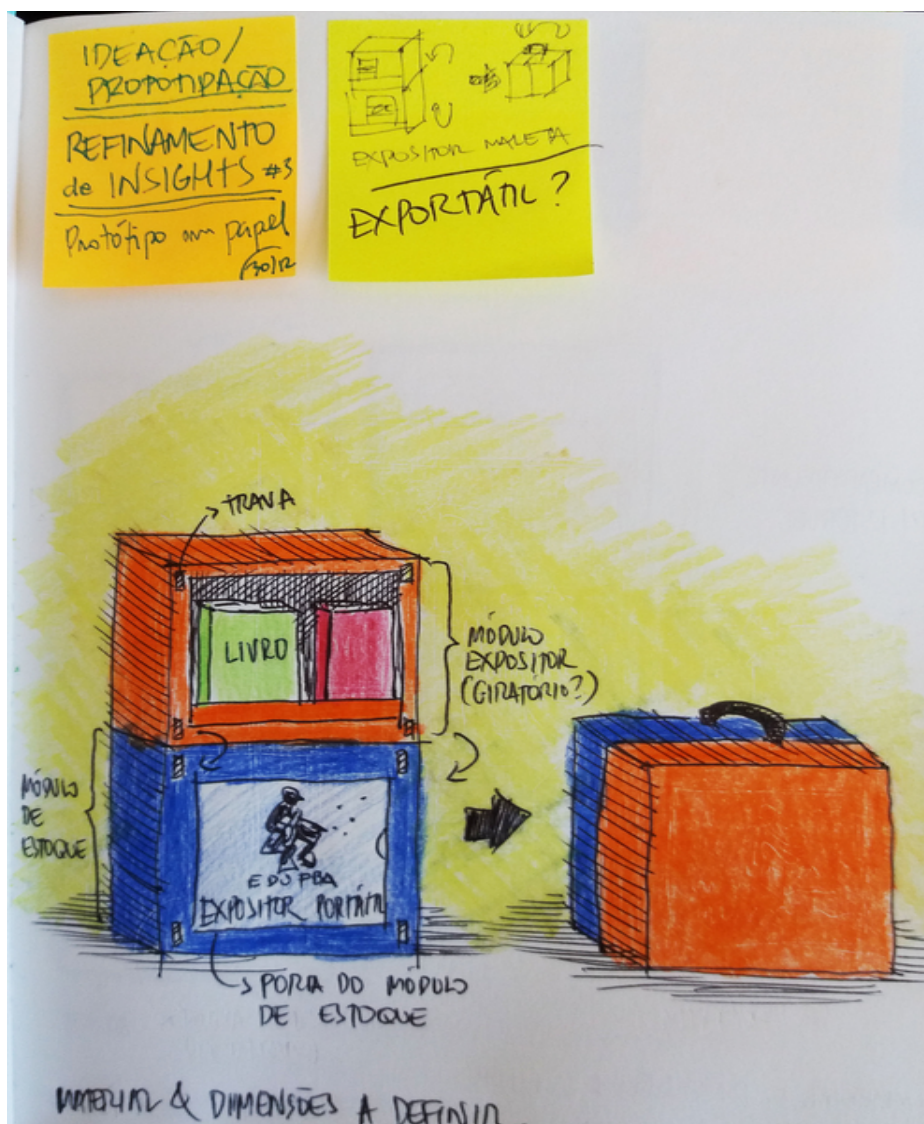 IDEAÇÃO/
PROTOTIPAÇÃO
REFINAMENTO
de INSIGHTS #3
Protótipo em papel
30/12
EXPOSITOR MALETA
EXPORTÁTIL?
TRAVA
LIVRO
MÓDULO
EXPOSITOR
(GIRATÓRIO?)
MÓDULO
DE
ESTOQUE
EDUFBA
EXPOSITOR PORTÁTIL
PORTA DO MÓDULO
DE ESTOQUE
MATERIAL & DIMENSÕES A DEFINIR